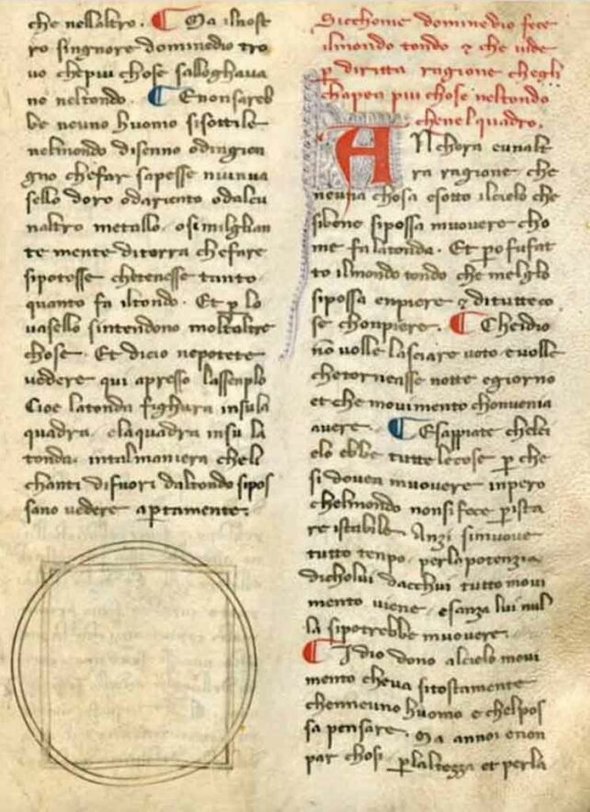 che nellaltro. ¶ Ma ilnost
ro singnore domimedio tro
uo chepiu chose salloghaua
no neltondo. ¶ Enonsareb
be neuno huomo sisottile
nelmondo disenno odingien
gno chefar sapesse niuna
sello doro odariento odalcu
naltro metallo. osimilglian
te mente diterra chefare
sipotesse chetenesse tanto
quanto fa iltondo. Et p lo
uasello sintendono moltaltre
chose. Et dicio nepotete
uedere qui apresso lassenplo
Cioe latonda fighura insula
quadra. elaquadra insu la
tonda. intalmaniera cheli
chanti difuori daltondo sipos
sano uedere aptamente.
Sicchome dominedio fece
ilmondo tondo & che uide
p diritta ragione chegli
chapea piu chose neltondo
chenelquadro.
ANchora eunalt
ra ragione che
neuna chosa esotto ilcielo che
sibene sipossa muouere cho
me fa latonda. Et po fu fat
to ilmondo tondo che melglo
sipossa enpiere & ditutte co
se chonpiere. ¶ Cheidio
nō uolle lasciare uoto euolle
chetornasse notte egiorno
et che mouimento chonuenia
auere. ¶ Esappiate chelci
elo ebbe tutte lecose p che
si douea muouere inpero
chelmondo nonsifece pista
re istabile. Anzi simuoue
tutto tenpo. perlapotenzia
dicholui dacchui tutto moui
mento uiene. esanza lui nul
la sipotrebbe muouere.
¶ Idio dono alcielo moui
mento cheua sitostamente
chenneuno huomo e chelpos
sa pensare. Ma annoi enon
par chosi. plaltezza et perla